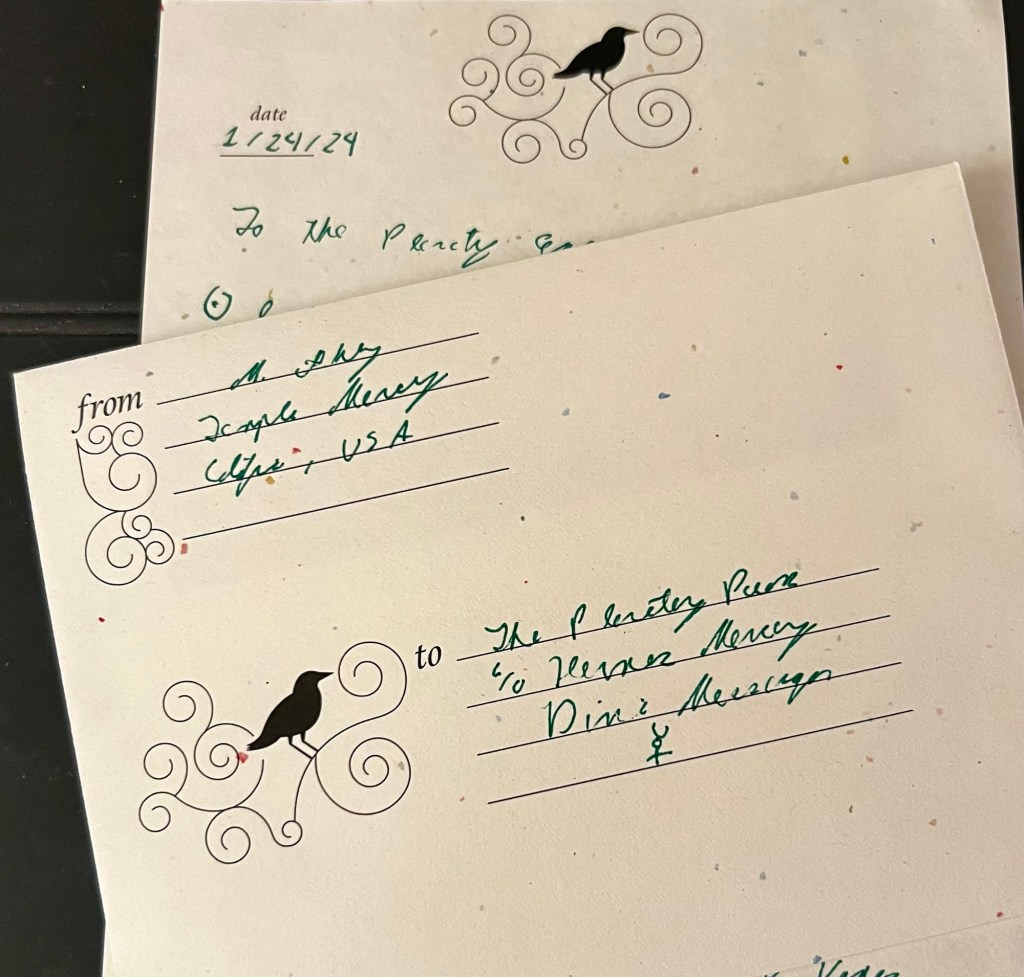 date
1/24/24
To the
☉
from
M.
Temple Mercury
, USA
to
The Planetary Powers
c/o Hermes Mercury
Divine Messenger
☿